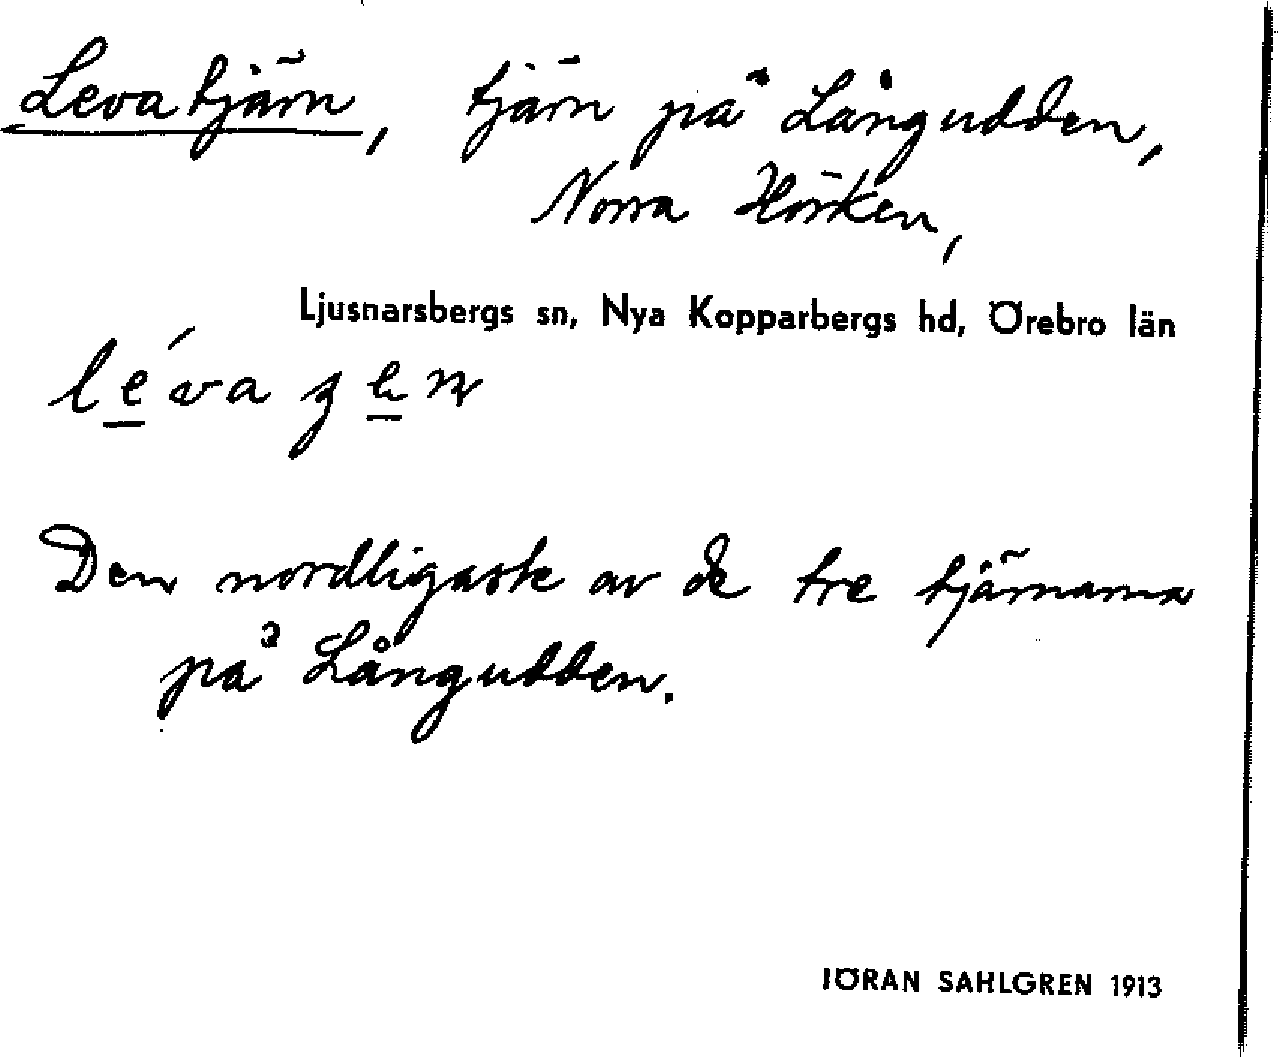 Levatjärn, tjärn på Långudden,
Norra Hörken,
Ljusnarsbergs sn, Nya Kopparbergs hd, Örebro län
Den nordligaste av de tre tjärnarna
på Långudden.
JÖRAN SAHLGREN 1913